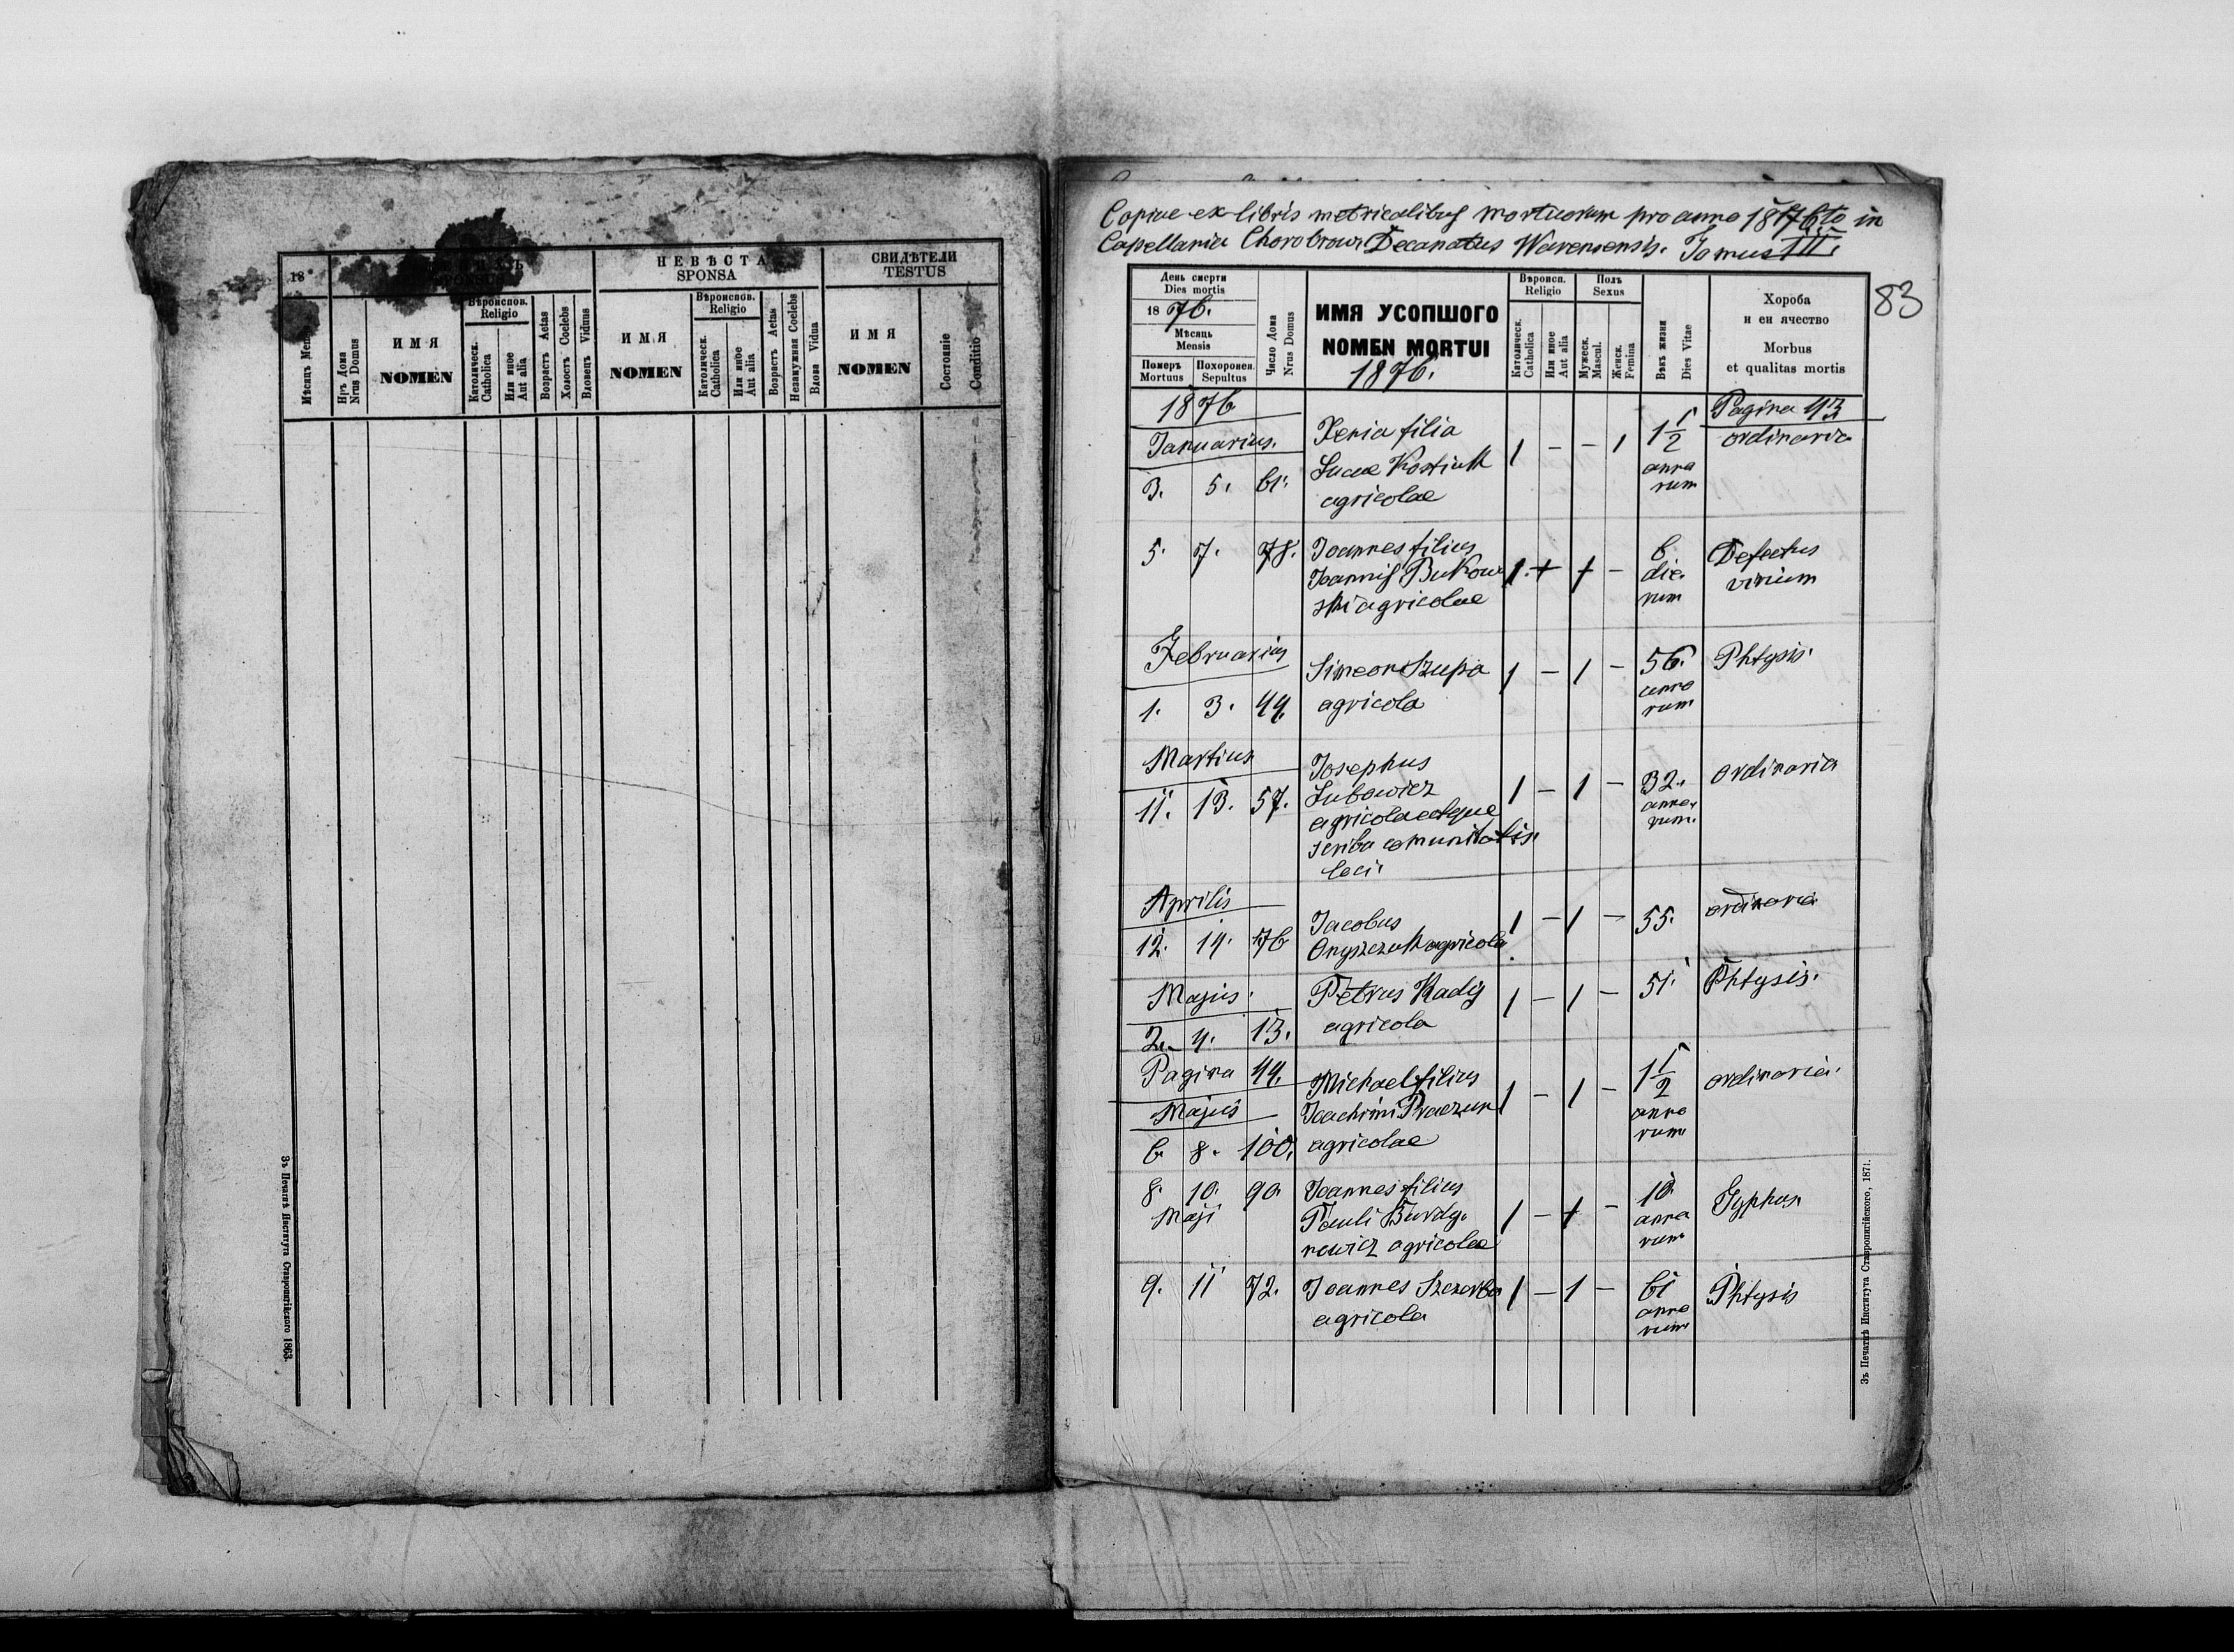 18
НЕВѢСТА
SPONSA
СВИДѢТЕЛИ
TESTUS
Мѣсяцъ Men
Нръ Дома
Nrus Domus
ИМЯ
NOMEN
Вѣроиспов.
Religio
Католическ.
Catholica
Или иное
Aut alia
Возрастъ Aetas
Холостъ Coelebs
Вдовецъ Viduus
ИМЯ
NOMEN
Вѣроиспов.
Religio
Католическ.
Catholica
Или иное
Aut alia
Возрастъ Aetas
Незамужная Coelebs
Вдова Vidua
ИМЯ
NOMEN
Состояніе
Conditio
Зъ Печатнѣ Института Ставропигійского 1863.
Copiae ex libris metricalibus mortuorum pro anno 1876to in
Capellania Chorobrow Decanatus Warensensis. Tomus III.
83
День смерти
Dies mortis
1876.
Мѣсяць
Mensis
Померъ
Mortuus
Похоронен.
Sepultus
Число Дома
Nrus Domus
ИМЯ УСОПШОГО
NOMEN MORTUI
1876.
Вѣроисп.
Religio
Католическ.
Catholica
Или иное
Aut alia
Полъ
Sexus
Мужеск.
Mascul.
Женск.
Femina
Вѣкъ жизни
Dies Vitae
Хороба
и еи ячество
Morbus
et qualitas mortis
1876
Pagina 43
Januarius.
3. 5. 61.
Xenia filia
Lucae Kostiuk
agricolae
1 - - 1
1 1/2
anno
rum
ordinaria
5. 7. 78.
Joannes filius
Joannis Bukow
ski agricolae
1 + 1 -
6
die
rum
Defectus
virium
Februarius
1. 3. 44.
Simeon Szupa
agricola
1 - 1 -
56.
anno
rum
Phtysis.
Martius
11. 13. 57.
Josephus
Lubowicz
agricola atque
scriba comunitatis
loci.
1 - 1 -
32.
anno
rum.
ordinaria
Aprilis
12. 14. 76
Jacobus
Onyszczuk agricola
1 - 1 -
55.
ordinaria
Majus.
2. 4. 13.
Petrus Kadij
agricola
1 - 1 -
51.
Phtysis.
Pagina 44.
Majus
6 8. 100.
Michael filius
Joachimi Praczuk
agricolae
1 - 1 -
1 1/2
anno
rum
ordinaria.
8. 10. 90.
Maji
Joannes filius
Pauli Burdy.
newicz agricolae
1 - 1 -
10.
anno
rum
Typhus
9. 11 72.
Joannes Szczerba
agricola
1 - 1 -
61
anno
rum
Phtysis
Зъ Печатнѣ Института Ставропигійского, 1871.